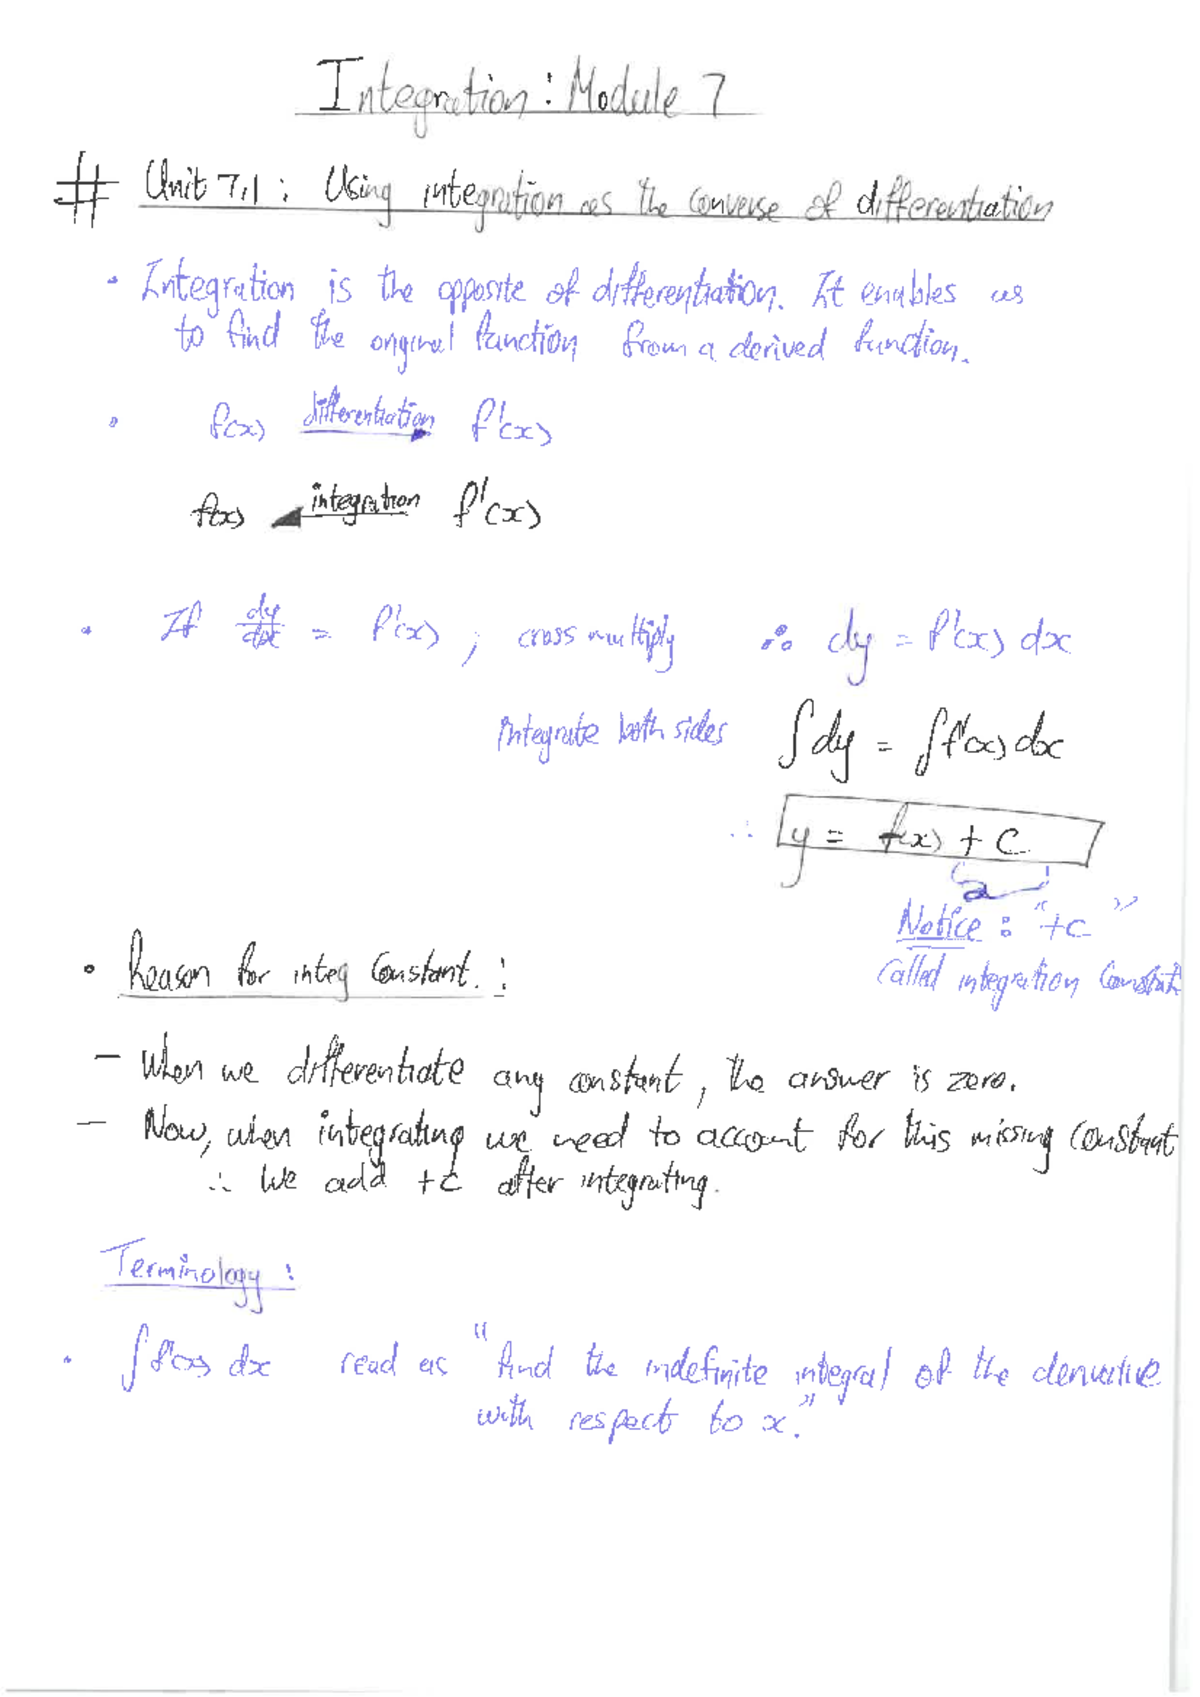 Integration : Module 7
# Unit 7.1 : Using integration as the converse of differentiation
• Integration is the opposite of differentiation. It enables us
to find the original function from a derived function.
• f(x) differentiation f'(x)
f(x) integration f'(x)
• If dy/dx = f'(x) ; cross multiply ∴ dy = f'(x) dx
integrate both sides ∫dy = ∫f'(x) dx
∴ y = f(x) + c
Notice : "+c"
called integration constant
• Reason for integ constant. :
— When we differentiate any constant, the answer is zero.
— Now, when integrating we need to account for this missing constant
∴ We add +c after integrating.
Terminology :
• ∫f'(x) dx read as "find the indefinite integral of the derivative
with respect to x."